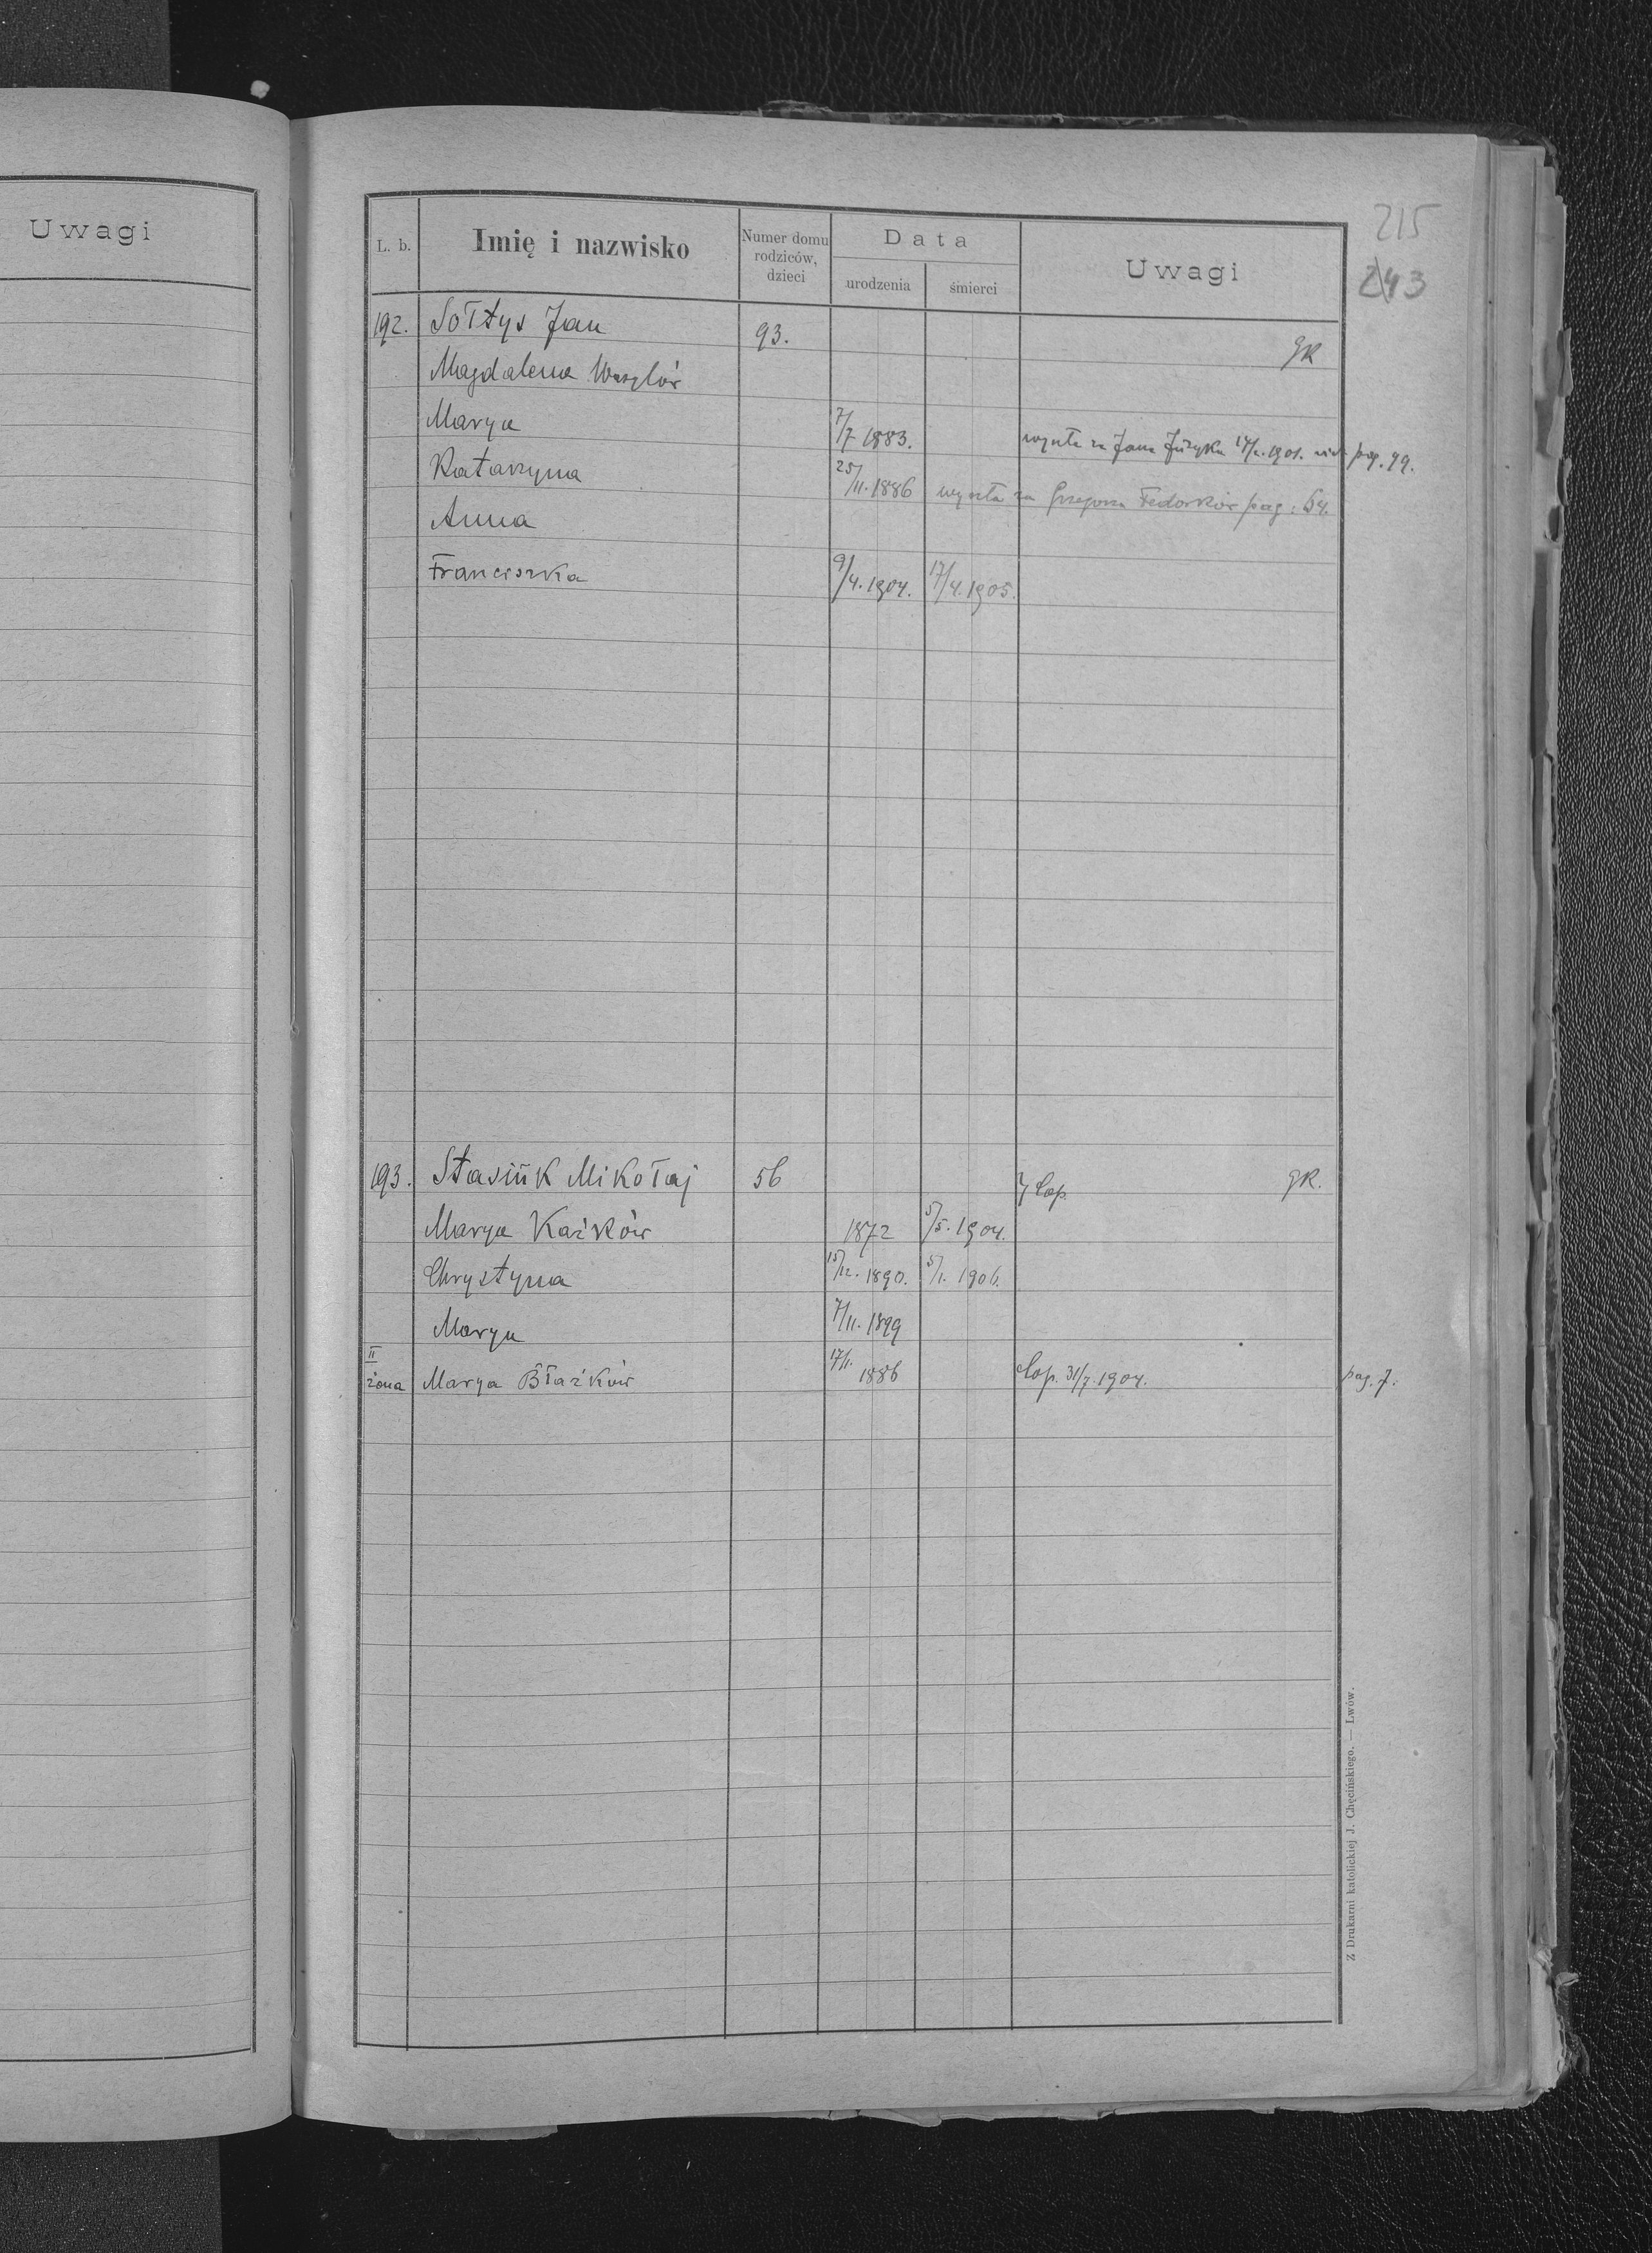 Uwagi
215
243
L. b. Imię i nazwisko Numer domu rodziców, dzieci Data urodzenia śmierci Uwagi
192. Sołtys Jan 93. GR
Magdalena
Marya 7/7 1883. wyszła za Jana 1901. pag. 99.
Katarzyna 25/11. 1886 wyszła za Grzegorza Fedorków pag: 64.
Anna
Franciszka 9/4. 1904. 17/4. 1905.
193. Stasiuk Mikołaj 56 GR.
Marya Kaźków 1872 5/5. 1904.
Chrystyna 15/12. 1890. 5/1. 1906.
Marya 7/11. 1899
II żona Marya Błażków 17/1. 1886 Cop. 31/7. 1904. pag. 7.
Z Drukarni katolickiej J. Chęcińskiego. — Lwów.